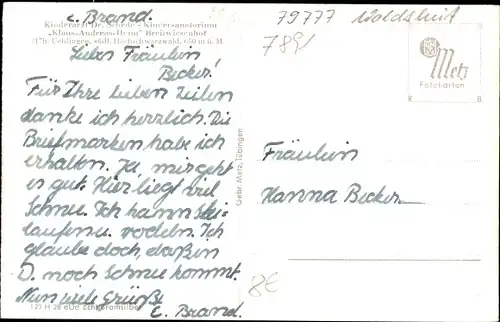 C. Brand.
Kinderarzt Dr. Kinersanatorium
"Klaus-Andreas-Heim" Breiwiesenhof
(17b) Uehlingen, südl. Hochschwarzwald, 650 m ü. M.
Lieben Fräulein
Becker!
Für Ihre lieben Zeilen
danke ich herrlich. Die
Briefmarken habe ich
erhalten. Ja, mir geht
es gut. Hier liegt viel
Schnee. Ich kann Ski-
laufen u. rodeln. Ich
glaube doch, daß in
D. noch Schnee kommt.
Nun viele Grüße
C. Brand.
127 H 28 Echt Bromsilber
Gebr. Metz, Tübingen
79777 Waldshut
7891
Metz
Fotokarten
R B
Fräulein
Hanna Becker
8€